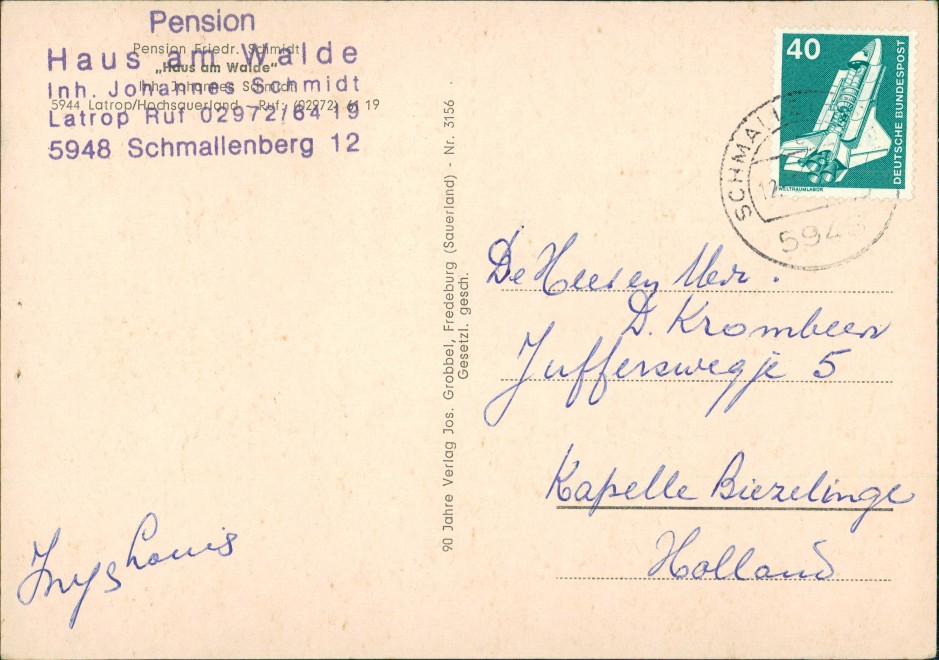 Pension
Haus am Walde
Inh. Johannes Schmidt
Latrop Ruf 02972/6419
5948 Schmallenberg 12
Pension Friedr. Schmidt
„Haus am Walde“
Inh. Johannes Schmidt
5944 Latrop/Hochsauerland - Ruf: (02972) 61 19
90 Jahre Verlag Jos. Grobbel, Fredeburg (Sauerland) - Nr. 3156
Gesetzl. gesch.
40
DEUTSCHE BUNDESPOST
WELTRAUMLABOR
SCHMALLE
12.
5948
De Heer en Mevr.
D. Krombeen
Jufferswegje 5
Kapelle Biezelinge
Holland
Louis